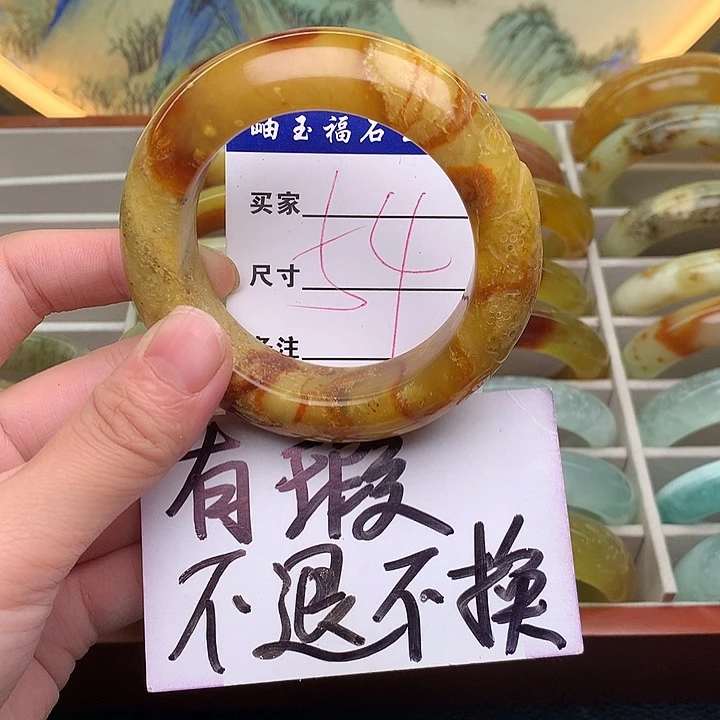 岫玉福石
买家
54
尺寸
备注
有瑕
不退不换